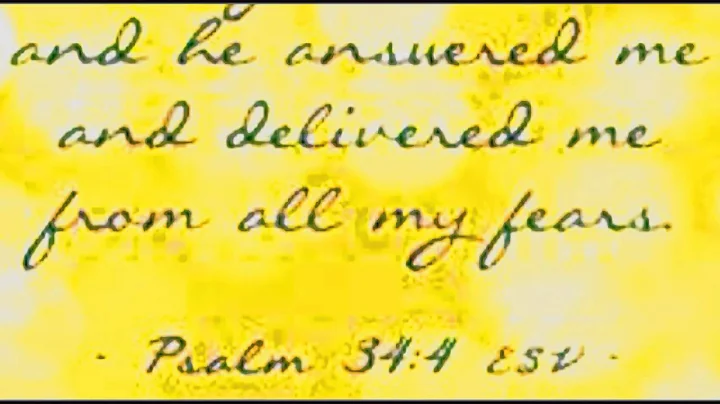 and he answered me
and delivered me
from all my fears.
- Psalm 34:4 ESV -